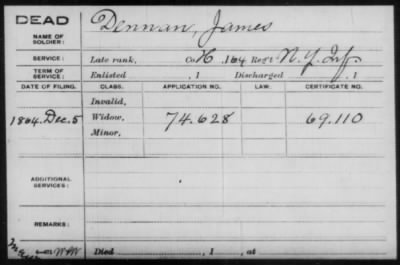 DEAD
NAME OF SOLDIER: Dennan, James
SERVICE: Late rank, Co H, 164 Reg't N.Y. Inf
TERM OF SERVICE: Enlisted , 1 Discharged , 1
DATE OF FILING. CLASS. APPLICATION NO. LAW. CERTIFICATE NO.
Invalid,
1864. Dec. 5 Widow, 74.628 69.110
Minor,
ADDITIONAL SERVICES:
REMARKS:
Died , 1 , at